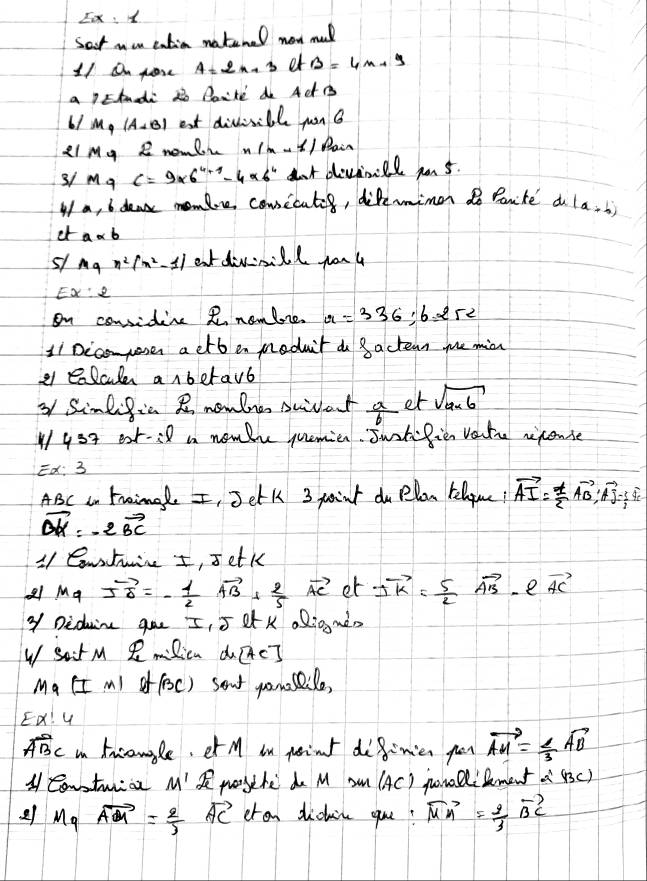 Ex : 1
Soit n un entier naturel non nul
1/ On pose A = 2n + 3 et B = 4n + 9
a/ Etudi la Parité de A et B
b/ Mq (A+B) est divisible par 6
2/ Mq le nombre n(n-1) Pair
3/ Mq C = 9×6ⁿ⁺¹ - 4×6ⁿ est divisible par 5.
4/ a, b deux nombres consécutifs, déterminer la Parité de (a+b)
et a×b
5/ Mq n²(n²-1) est divisible par 4
Ex : 2
On considère les nombres a = 336 ; b = 252
1/ Décomposer a et b en produit de facteur premier
2/ Calculer a∧b et a∨b
3/ Simlifier les nombres suivant a/b et √(a×b)
4/ 437 est-il un nombre premier. Justifier vortre réponse
Ex : 3
ABC un traingle I, J et K 3 point du Plan telque : AI = 1/2 AB ; AJ =
BK = -2 BC
1/ Construire I, J et K
2/ Mq IJ = -1/2 AB + 2/5 AC et IK = 5/2 AB - 2 AC
3/ Déduire que I, J et K alignés
4/ Soit M le milieu de [AC]
Mq (IM) et (BC) sont parallèles
Ex : 4
ABC un triangle . et M un point définier par AM = 1/3 AB
1/ Construire M' le projeté de M sur (AC) parallèlement à (BC)
2/ Mq AM' = 2/3 AC et on déduire que : MM' = 2/3 BC